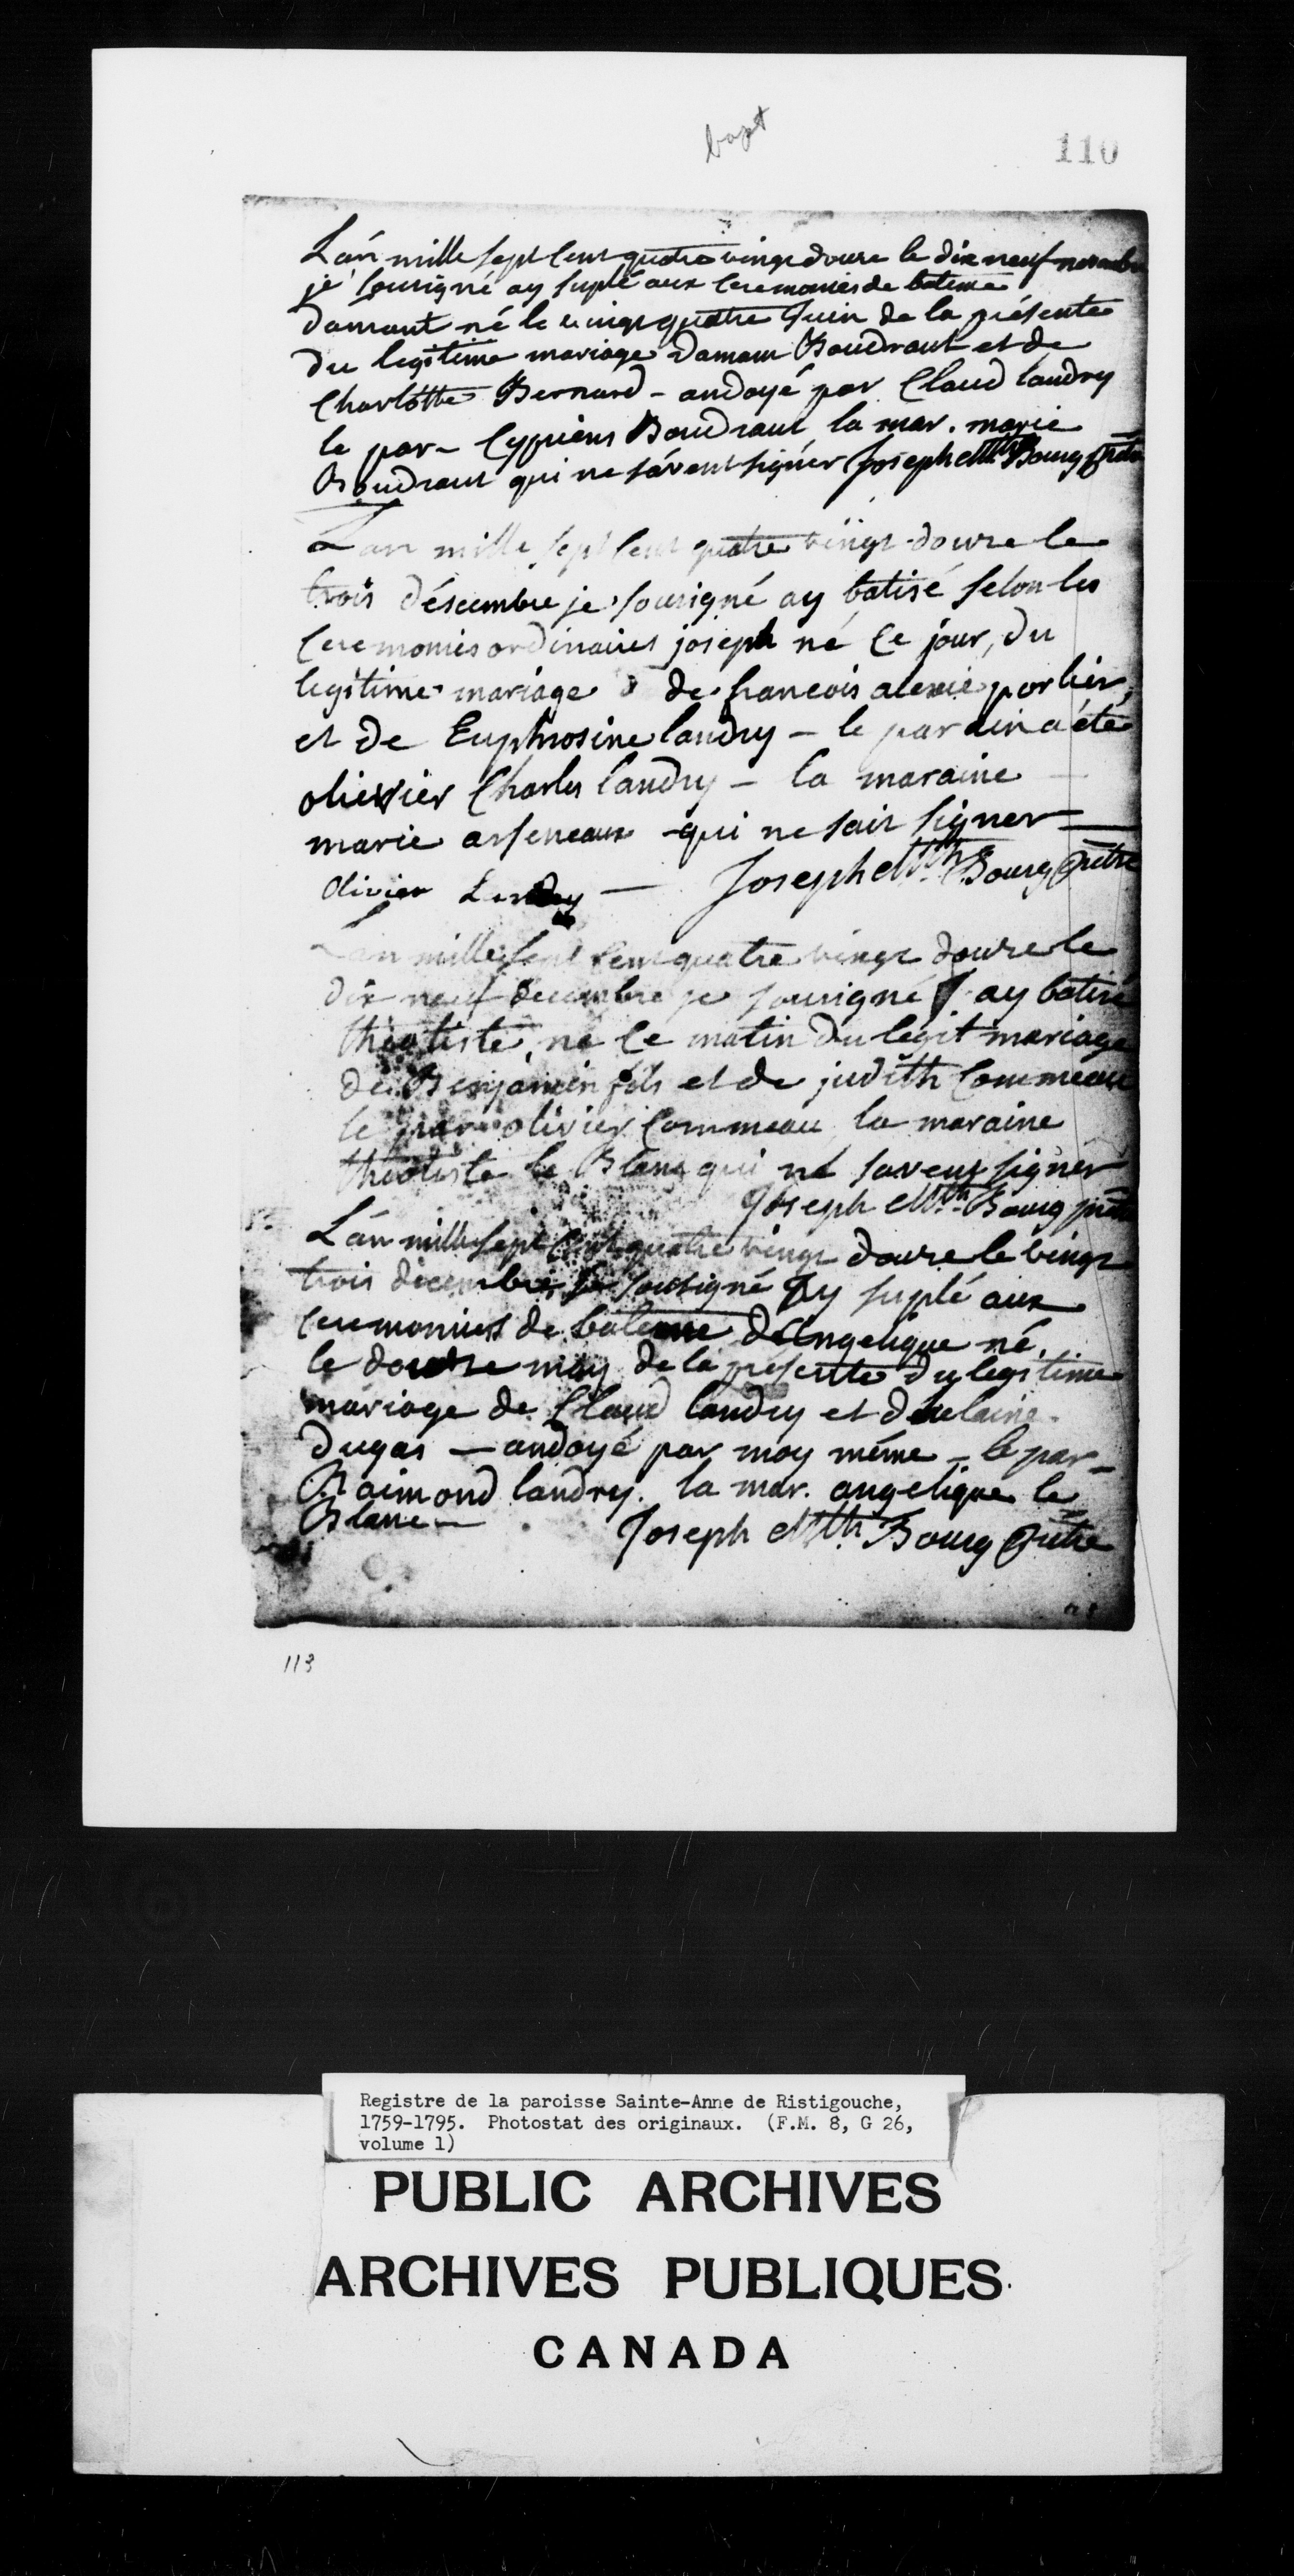 bapt
110
L'án mille sept cent quatre vingt douze le dix neuf novembre
je sousigné ay suplé aux ceremonies de bateme
damant né le vingt quatre Juin de la présente
du legitime mariage damant Boudraut et de
Charlotte Bernard - andoyé par Claud landry
le par - Cypriens Boudraut la mar. marie
Boudraut qui ne sávent signér Joseph Mth Bourg prêtre
L'an mille sept cent quatre vingt douze le
trois désembre je sousigné ay batisé selon les
ceremonies ordinaires joseph né ce jour, du
legitime mariage de francois alexie porlier,
et de Euphrosine landry - le parain a été
olivier Charles landry - la maraine
marie arseneaux qui ne sait signer
Olivier Landry — Joseph Mth. Bourg prêtre
L'an mille sept cent quatre vingt douze le
dix neuf decembre je sousigné ay batisé
théotiste, né ce matin du legit mariage
de Benjamin fils et de judith Commeau
le par olivier Commeau la maraine
théotiste le Blanc qui ne savent signér
Joseph Mth. Bourg prêtre
L'án mille sept cent quatre vingt douze le vingt
trois décembre je sousigné ay suplé aux
ceremonies de bateme d'Angelique né,
le douze may de la présente du legitime
mariage de Claud landry et d'
dugas — andoyé par moy même - le par -
Raimond landry. la mar. angelique le
Blanc — Joseph Mth. Bourg prêtre
113
Registre de la paroisse Sainte-Anne de Ristigouche,
1759-1795. Photostat des originaux. (F.M. 8, G 26,
volume 1)
PUBLIC ARCHIVES
ARCHIVES PUBLIQUES
CANADA